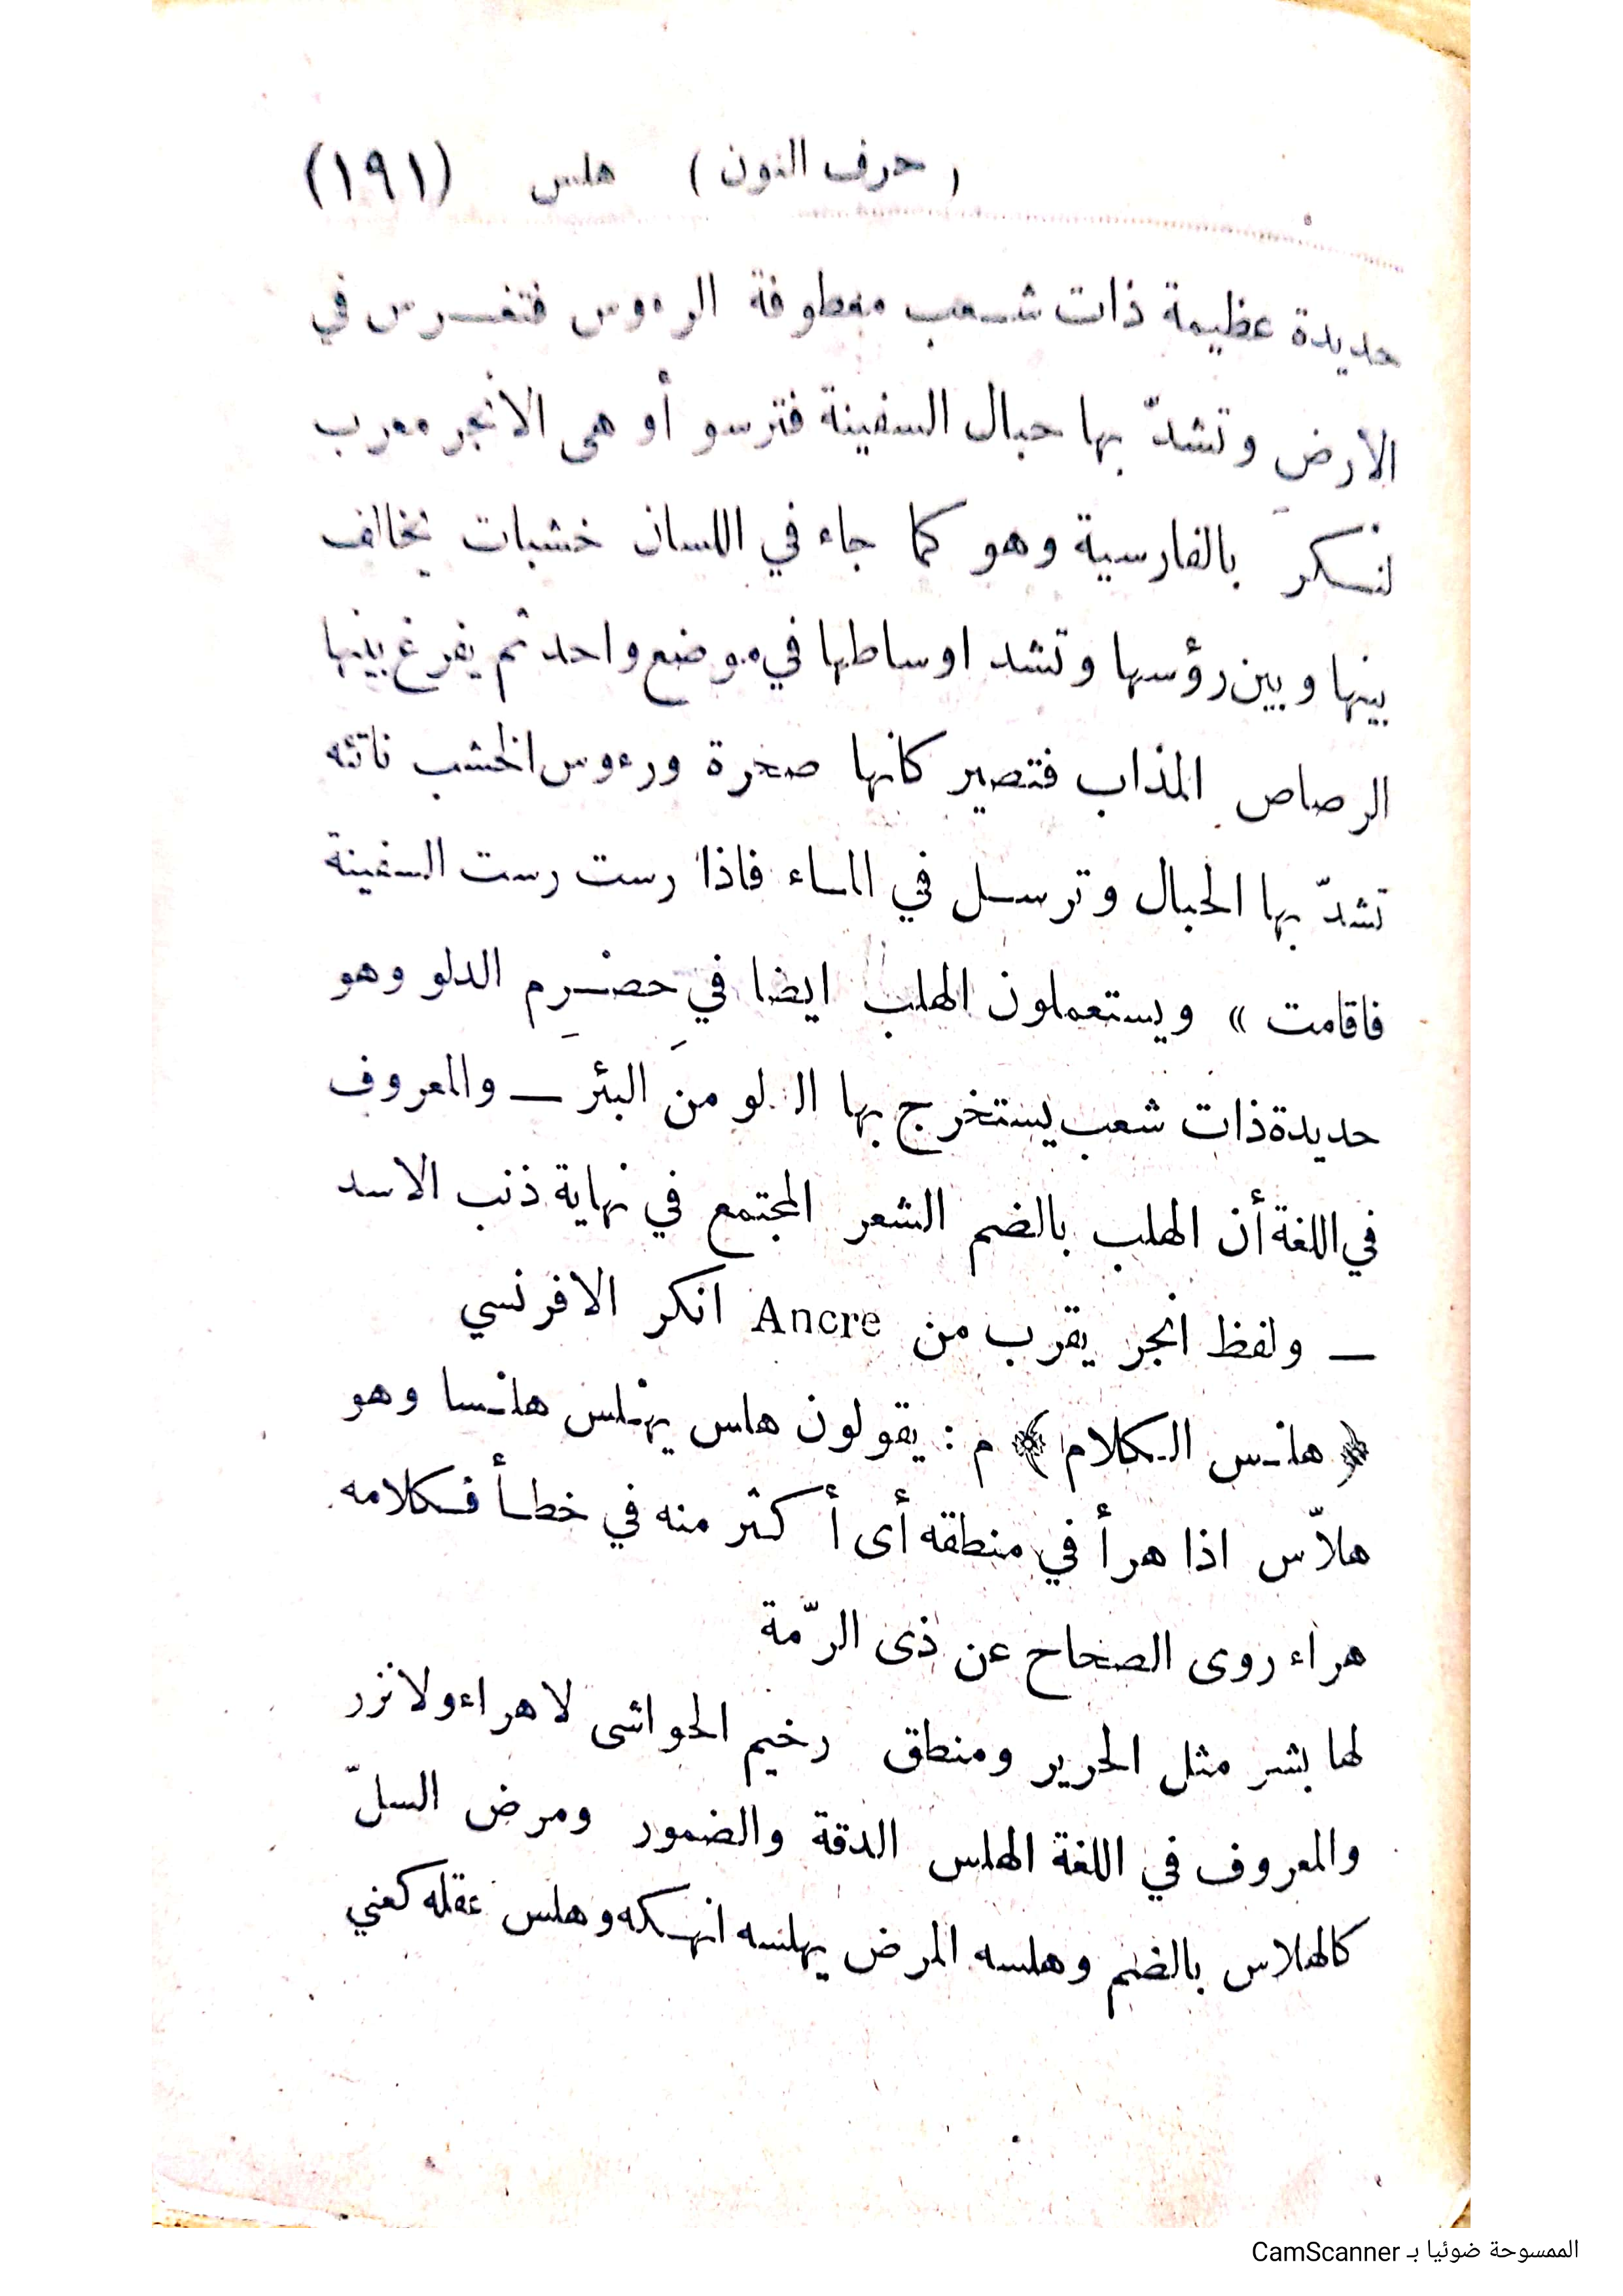 ( حرف النون ) هلس (١٩١)
حديدة عظيمة ذات شعب معطوفة الرءوس فتغرس في
الارض وتشدّ بها حبال السفينة فترسو أو هى الأنجر معرب
لنكر بالفارسية وهو كما جاء في اللسان خشبات يخالف
بينها وبين رؤسها وتشد اوساطها في موضع واحد ثم يفرغ بينها
الرصاص المذاب فتصير كانها صخرة ورءوس الخشب ناتئه
تشدّ بها الحبال وترسل في الماء فاذا رست رست السفينة
فاقامت » ويستعملون الهلب ايضا في حضرِم الدلو وهو
حديدة ذات شعب يستخرج بها الدلو من البئر — والمعروف
في اللغة أن الهلب بالضم الشعر المجتمع في نهاية ذنب الاسد
— ولفظ انجر يقرب من Ancre انكر الافرنسي
﴿ هلس الكلام ﴾ م : يقولون هلس يهلس هلسا وهو
هلاّس اذا هرأ في منطقه أى أكثر منه في خطأ فكلامه
هراء روى الصحاح عن ذى الرّمة
لها بشر مثل الحرير ومنطق رخيم الحواشى لاهراء ولا نزر
والمعروف في اللغة الهلس الدقة والضمور ومرض السلّ
كالهلاس بالضم وهلسه المرض يهلسه انهكه وهلس عقله كعني
الممسوحة ضوئيا بـ CamScanner